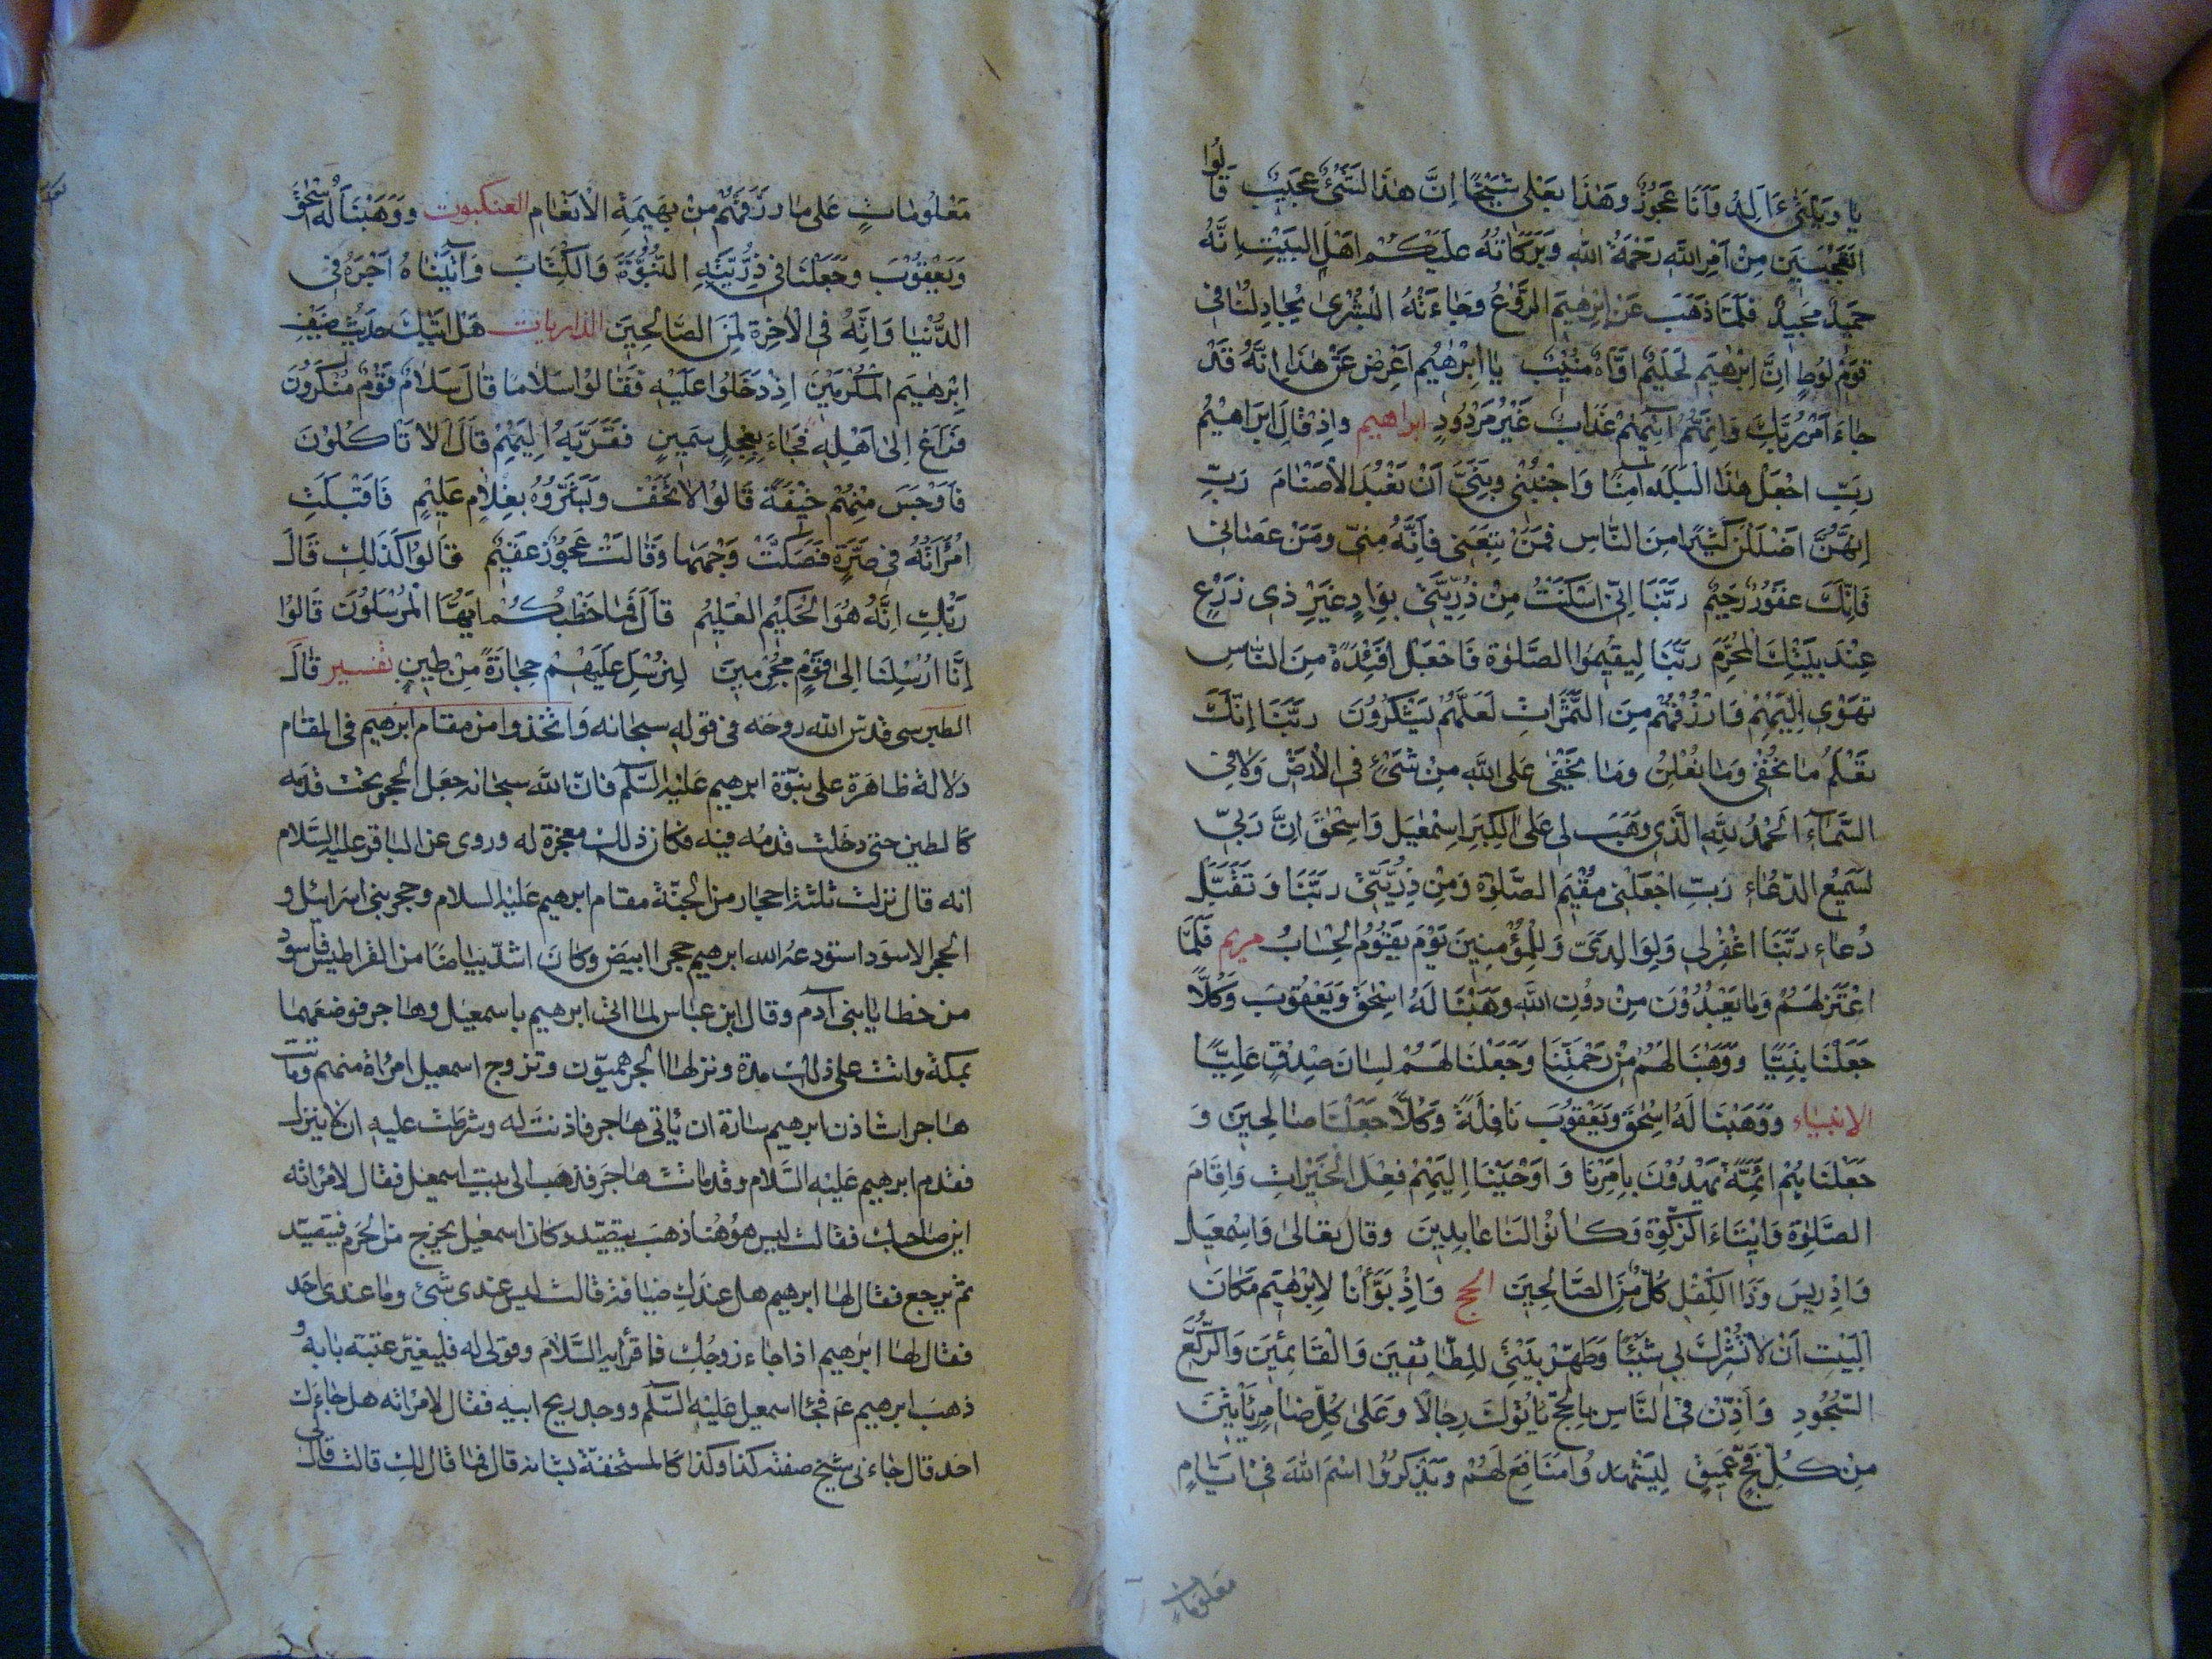 يا ويلتى ءالد وانا عجوز وهذا بعلى شيخا ان هذا لشئ عجيب قالوا
اتعجبين من امر الله رحمة الله وبركاته عليكم اهل البيت انه
حميد مجيد فلما ذهب عن ابرهيم الروع وجاءته البشرى يجادلنا فى
قوم لوط ان ابرهيم لحليم اواه منيب يا ابرهيم اعرض عن هذا انه قد
جاء امر ربك وانهم آتيهم عذاب غير مردود ابراهيم واذ قال ابراهيم
رب اجعل هذا البلد آمنا واجنبنى وبنى ان نعبد الاصنام رب
انهن اضللن كثيرا من الناس فمن تبعنى فانه منى ومن عصانى
فانك غفور رحيم ربنا انى اسكنت من ذريتى بواد غير ذى زرع
عند بيتك المحرم ربنا ليقيموا الصلوة فاجعل افئدة من الناس
تهوى اليهم وارزقهم من الثمرات لعلهم يشكرون ربنا انك
تعلم ما نخفى وما نعلن وما يخفى على الله من شئ فى الارض ولا فى
السماء الحمد لله الذى وهب لى على الكبر اسمعيل واسحق ان ربى
لسميع الدعاء رب اجعلنى مقيم الصلوة ومن ذريتى ربنا وتقبل
دعاء ربنا اغفر لى ولوالدى وللمؤمنين يوم يقوم الحساب مريم فلما
اعتزلهم وما يعبدون من دون الله وهبنا له اسحق ويعقوب وكلا
جعلنا نبيا ووهبنا لهم من رحمتنا وجعلنا لهم لسان صدق عليا
الانبياء ووهبنا له اسحق ويعقوب نافلة وكلا جعلنا صالحين و
جعلناهم ائمة يهدون بامرنا واوحينا اليهم فعل الخيرات واقام
الصلوة وايتاء الزكوة وكانوا لنا عابدين وقال تعالى واسمعيل
وادريس وذا الكفل كل من الصالحين الحج واذ بوأنا لابرهيم مكان
البيت ان لا تشرك بى شيئا وطهر بيتى للطائفين والقائمين والركع
السجود واذن فى الناس بالحج ياتوك رجالا وعلى كل ضامر ياتين
من كل فج عميق ليشهدوا منافع لهم ويذكروا اسم الله فى ايام
معلومات
معلومات على ما رزقهم من بهيمة الانعام العنكبوت ووهبنا له اسحق
ويعقوب وجعلنا فى ذريته النبوة والكتاب وآتيناه اجره فى
الدنيا وانه فى الآخرة لمن الصالحين الذاريات هل اتيك حديث ضيف
ابرهيم المكرمين اذ دخلوا عليه فقالوا سلاما قال سلام قوم منكرون
فراغ الى اهله فجاء بعجل سمين فقربه اليهم قال الا تاكلون
فاوجس منهم خيفة قالوا لا تخف وبشروه بغلام عليم فاقبلت
امرأته فى صرة فصكت وجهها وقالت عجوز عقيم قالوا كذلك قال
ربك انه هو الحكيم العليم قال فما خطبكم ايها المرسلون قالوا
انا ارسلنا الى قوم مجرمين لنرسل عليهم حجارة من طين تفسير قال
الطبرسى قدس الله روحه فى قوله سبحانه واتخذوا من مقام ابرهيم فى المقام
دلالة ظاهرة على نبوة ابرهيم عليه السلم فان الله سبحانه جعل الحجر تحت قدمه
كالطين حتى دخلت قدمه فيه فكان ذلك معجزة له وروى عن الباقر عليه السلام
انه قال نزلت ثلثة احجار من الجنة مقام ابرهيم عليه السلام وحجر بنى اسرائيل و
الحجر الاسود استودعه الله ابرهيم حجرا ابيض وكان اشد بياضا من القراطيس فاسود
من خطايا بنى آدم وقال ابن عباس لما اتى ابرهيم باسمعيل وهاجر فوضعهما
بمكة واتت على ذلك مدة ونزلها الجرهميون وتزوج اسمعيل امرأة منهم وماتت
هاجر استاذن ابرهيم سارة ان ياتى هاجر فاذنت له وشرطت عليه ان لا ينزل
فقدم ابرهيم عليه السلام وقد ماتت هاجر فذهب الى بيت اسمعيل فقال لامرأته
اين صاحبك فقالت ليس هو هنا ذهب يتصيد وكان اسمعيل يخرج من الحرم فيتصيد
ثم يرجع فقال لها ابرهيم هل عندك ضيافة قالت ليس عندى شئ وما عندى احد
فقال لها ابرهيم اذا جاء زوجك فاقرأيه السلام وقولى له فليغير عتبة بابه و
ذهب ابرهيم ع فجاء اسمعيل عليه السلم ووجد ريح ابيه فقال لامرأته هل جاءك
احد قال جاءنى شيخ صفته كذا وكذا كالمستخفة بشانه قال فما قال لك قالت قال لى